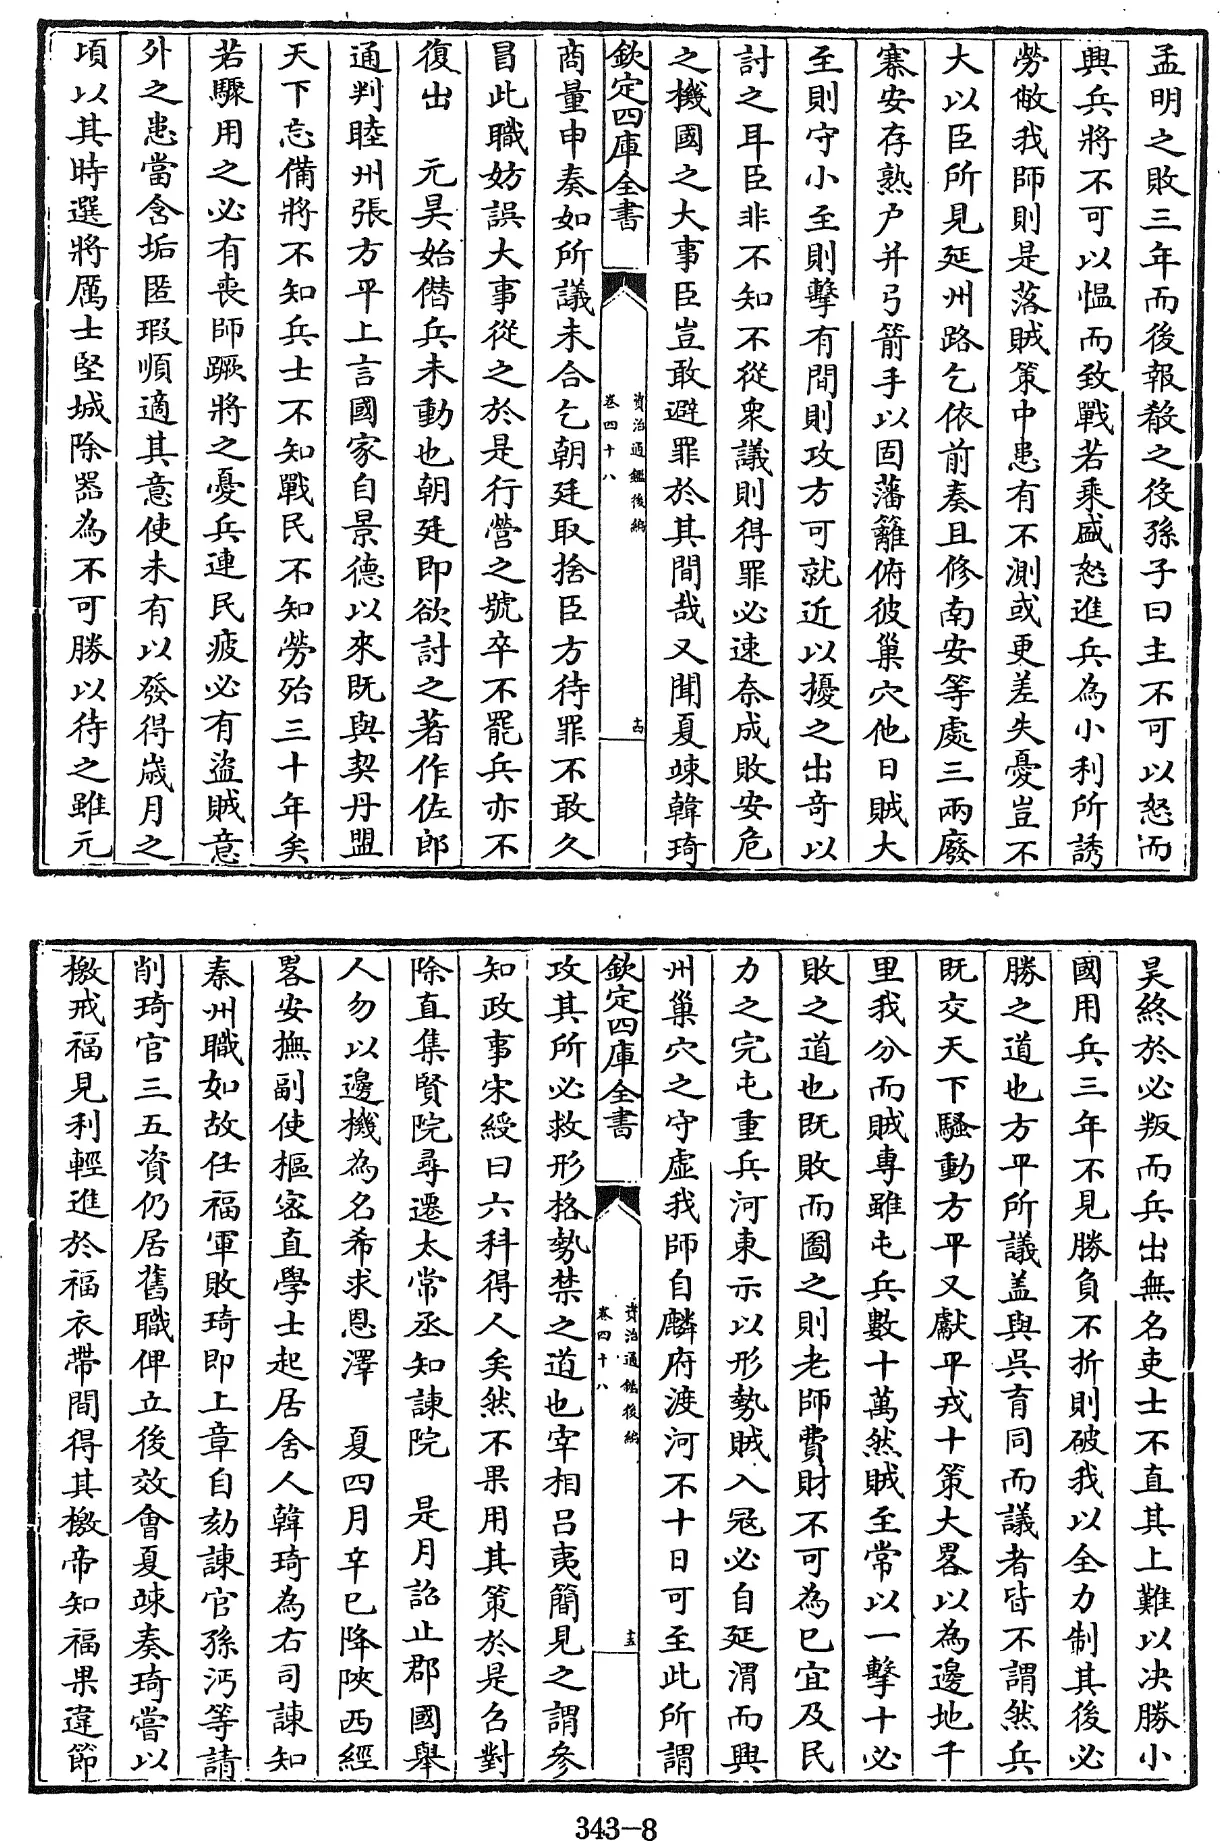 孟明之敗三年而後報殽之役孫子曰主不可以怒而
興兵將不可以愠而致戰若乘盛怒進兵為小利所誘
勞敝我師則是落賊策中患有不測或更差失憂豈不
大以臣所見延州路乞依前奏且修南安等處三兩廢
寨安存熟户并弓箭手以固藩籬俯彼巢穴他日賊大
至則守小至則擊有間則攻方可就近以擾之出奇以
討之耳臣非不知不從衆議則得罪必速奈成敗安危
之機國之大事臣豈敢避罪於其間哉又聞夏竦韓琦
欽定四庫全書
資治通鑑後編
卷四十八
十四
商量申奏如所議未合乞朝廷取捨臣方待罪不敢久
冒此職妨誤大事從之於是行營之號卒不罷兵亦不
復出　元昊始僭兵未動也朝廷即欲討之著作佐郎
通判睦州張方平上言國家自景德以來既與契丹盟
天下忘備將不知兵士不知戰民不知勞殆三十年矣
若驟用之必有喪師蹶將之憂兵連民疲必有盜賊意
外之患當含垢匿瑕順適其意使未有以發得歲月之
頃以其時選將厲士堅城除器為不可勝以待之雖元
昊終於必叛而兵出無名吏士不直其上難以决勝小
國用兵三年不見勝負不折則破我以全力制其後必
勝之道也方平所議盖與吳育同而議者皆不謂然兵
既交天下騷動方平又獻平戎十策大畧以為邊地千
里我分而賊專雖屯兵數十萬然賊至常以一擊十必
敗之道也既敗而圖之則老師費財不可為已宜及民
力之完屯重兵河東示以形勢賊入冦必自延渭而興
州巢穴之守虛我師自麟府渡河不十日可至此所謂
欽定四庫全書
資治通鑑後編
卷四十八
十五
攻其所必救形格勢禁之道也宰相吕夷簡見之謂參
知政事宋綬曰六科得人矣然不果用其策於是召對
除直集賢院尋遷太常丞知諫院　是月詔止郡國舉
人勿以邊機為名希求恩澤　夏四月辛巳降陜西經
畧安撫副使樞宻直學士起居舍人韓琦為右司諫知
秦州職如故任福軍敗琦即上章自劾諫官孫沔等請
削琦官三五資仍居舊職俾立後效會夏竦奏琦嘗以
檄戒福見利輕進於福衣帶間得其檄帝知福果違節
343-8